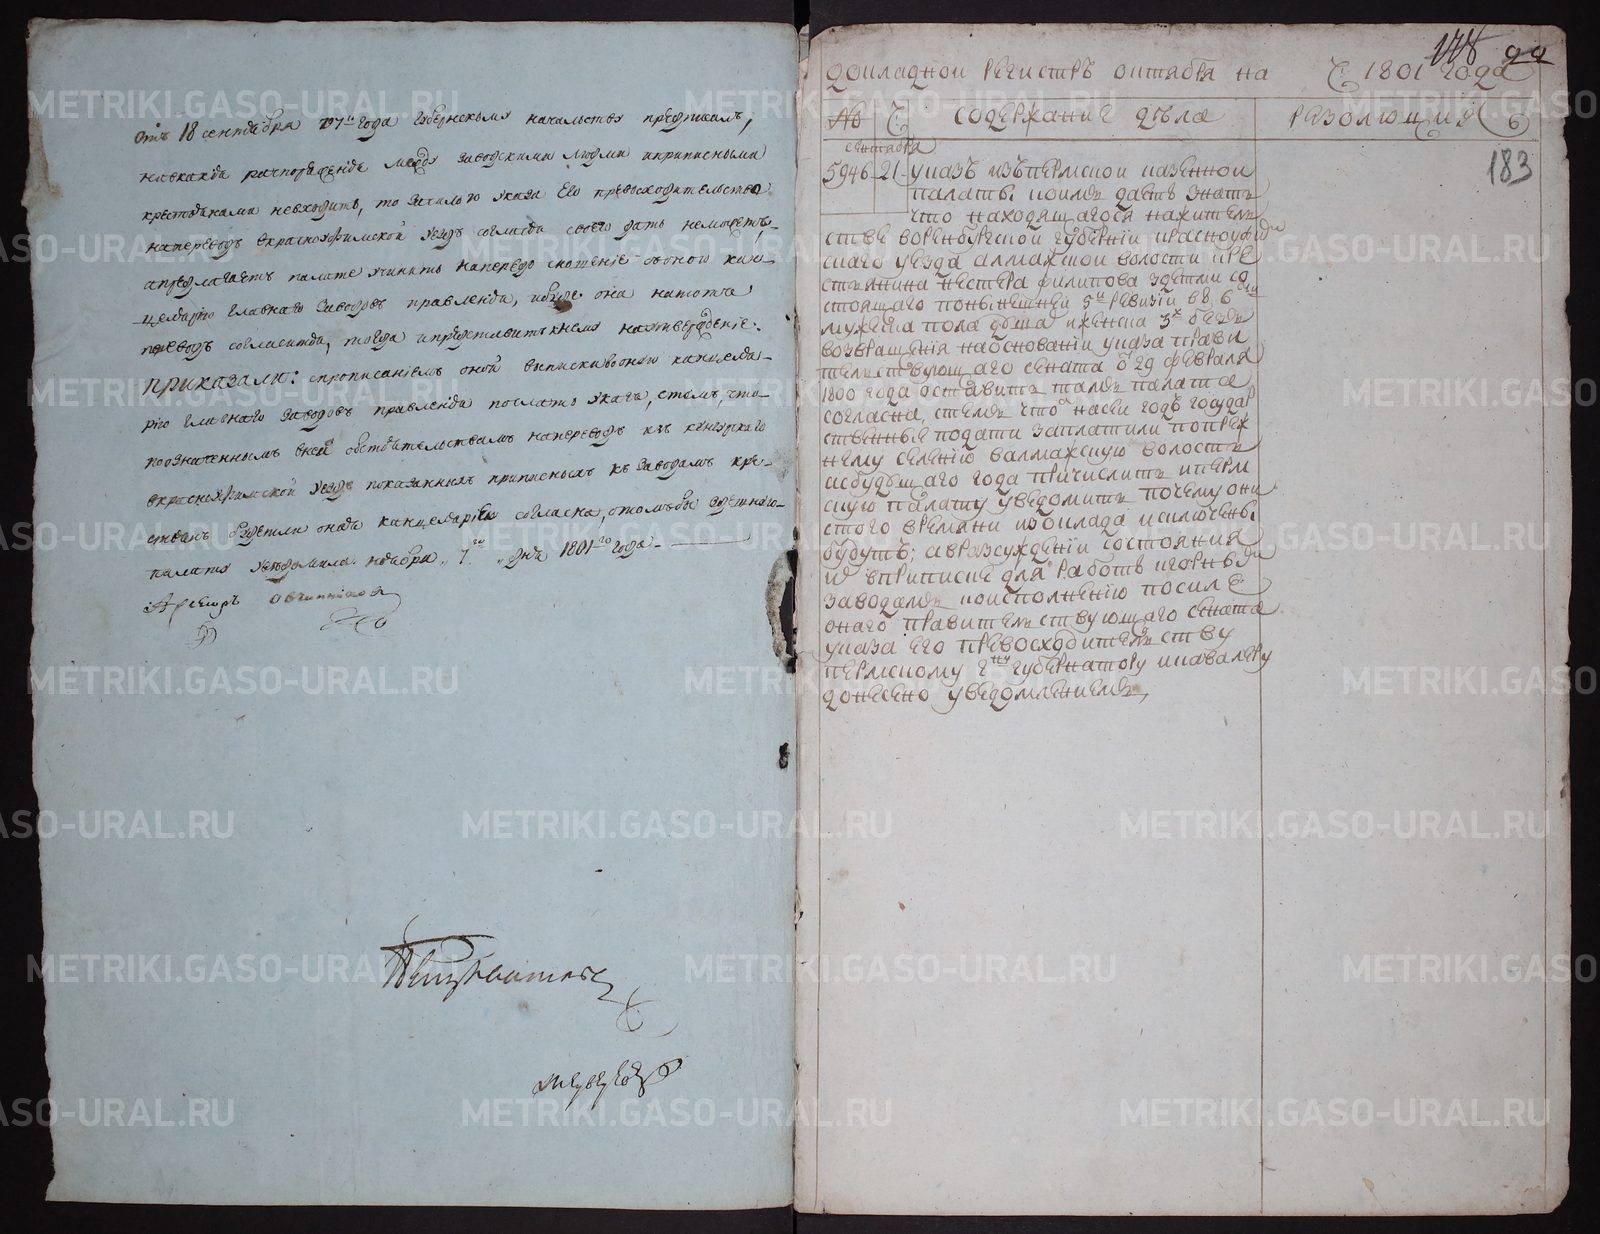 отъ 18 сентября 797го года Губернскому начальству предписалъ,
ни въ какiя распоряженiя между заводскими людми и приписными
крестьянами не входить, то по силе того указа Его превосходительство
на переводъ в Красноуфимской уездъ согласiя своего дать не можетъ,
а предлагаетъ палате учинить на передъ сношенiе с оною канцелярiю Главнаго заводовъ правленiя, и буде она на тотъ
переводъ согласится, тогда и представить къ нему на утвержденiе.
приказали: с прописанiемъ оной выписки в оною канцеля-
рiю Главнаго заводовъ правленiя послать указъ, с темъ, что
по означеннымъ в ней обстоятельствамъ на переводъ изъ кунгурскаго
в красноуфимской уездъ показанныхъ приписныхъ къ заводамъ кре-
стьянъ будетли оная канцелярiя согласна, о томъ бы здешнюю
палату уведомила. ноября 7го дня 1801го года
Асесоръ Овчинников
METRIKI.GASO-URAL.RU
148 99
докладной регистръ октября на 1801 года
№ Ч. содержанiе дѣла резолюцiя
183
сентября
5946 21 указъ изъ пермской казенной
палаты коимъ даетъ знать
что находящагося на жителстве в оренбургской губернiи красноуфимскаго уезда алмажской волости крестьянина нестера филипова з детми состоящаго по нынешней 5й ревизiи в 8
мужеска пола душа и женска 3х безъ
возвращенiя на основанiи указа правителствующаго сената о 29 февраля
1800 года оставить тамъ палата
согласна, с темъ что на сей годъ государственные подати заплатили по прежнему селенiю в алмажскую волость
а с будущаго года причислить и пермскую палату уведомить почему они
с того времени из оклада исключены
будутъ; а в разсужденiи состоянiя
ихъ в приписке для работъ к горнымъ
заводамъ ко исполненiю по силе
онаго правителствующаго сената
указа его превосходителству
пермскому гну губернатору и кавалеру
донесено уведомленiемъ,